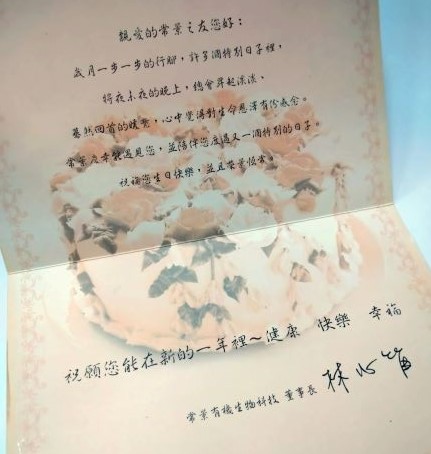 親愛的常景之友您好：
歲月一步一步的行腳，許多個特別日子裡，
將夜未夜的晚上，總會昇起淡淡、
驀然回首的曖，心中覺得對生命恩澤有份感念，
常景慶幸能遇見您，並陪伴您度過又一個特別的日子。
祝福您生日快樂，並且榮景恆常。
祝願您能在新的一年裡～健康 快樂 幸福
常景有機生物科技 董事長 林